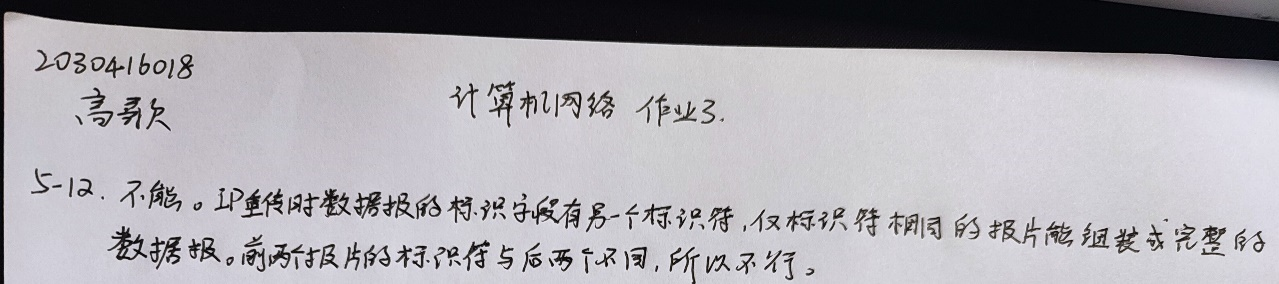 2030416018
高歌
计算机网络 作业3.
5-12. 不能。IP重传时数据报的标识字段有另一个标识符,仅标识符相同的报片能组装成完整的
数据报。前两个报片的标识符与后两个不同,所以不行。